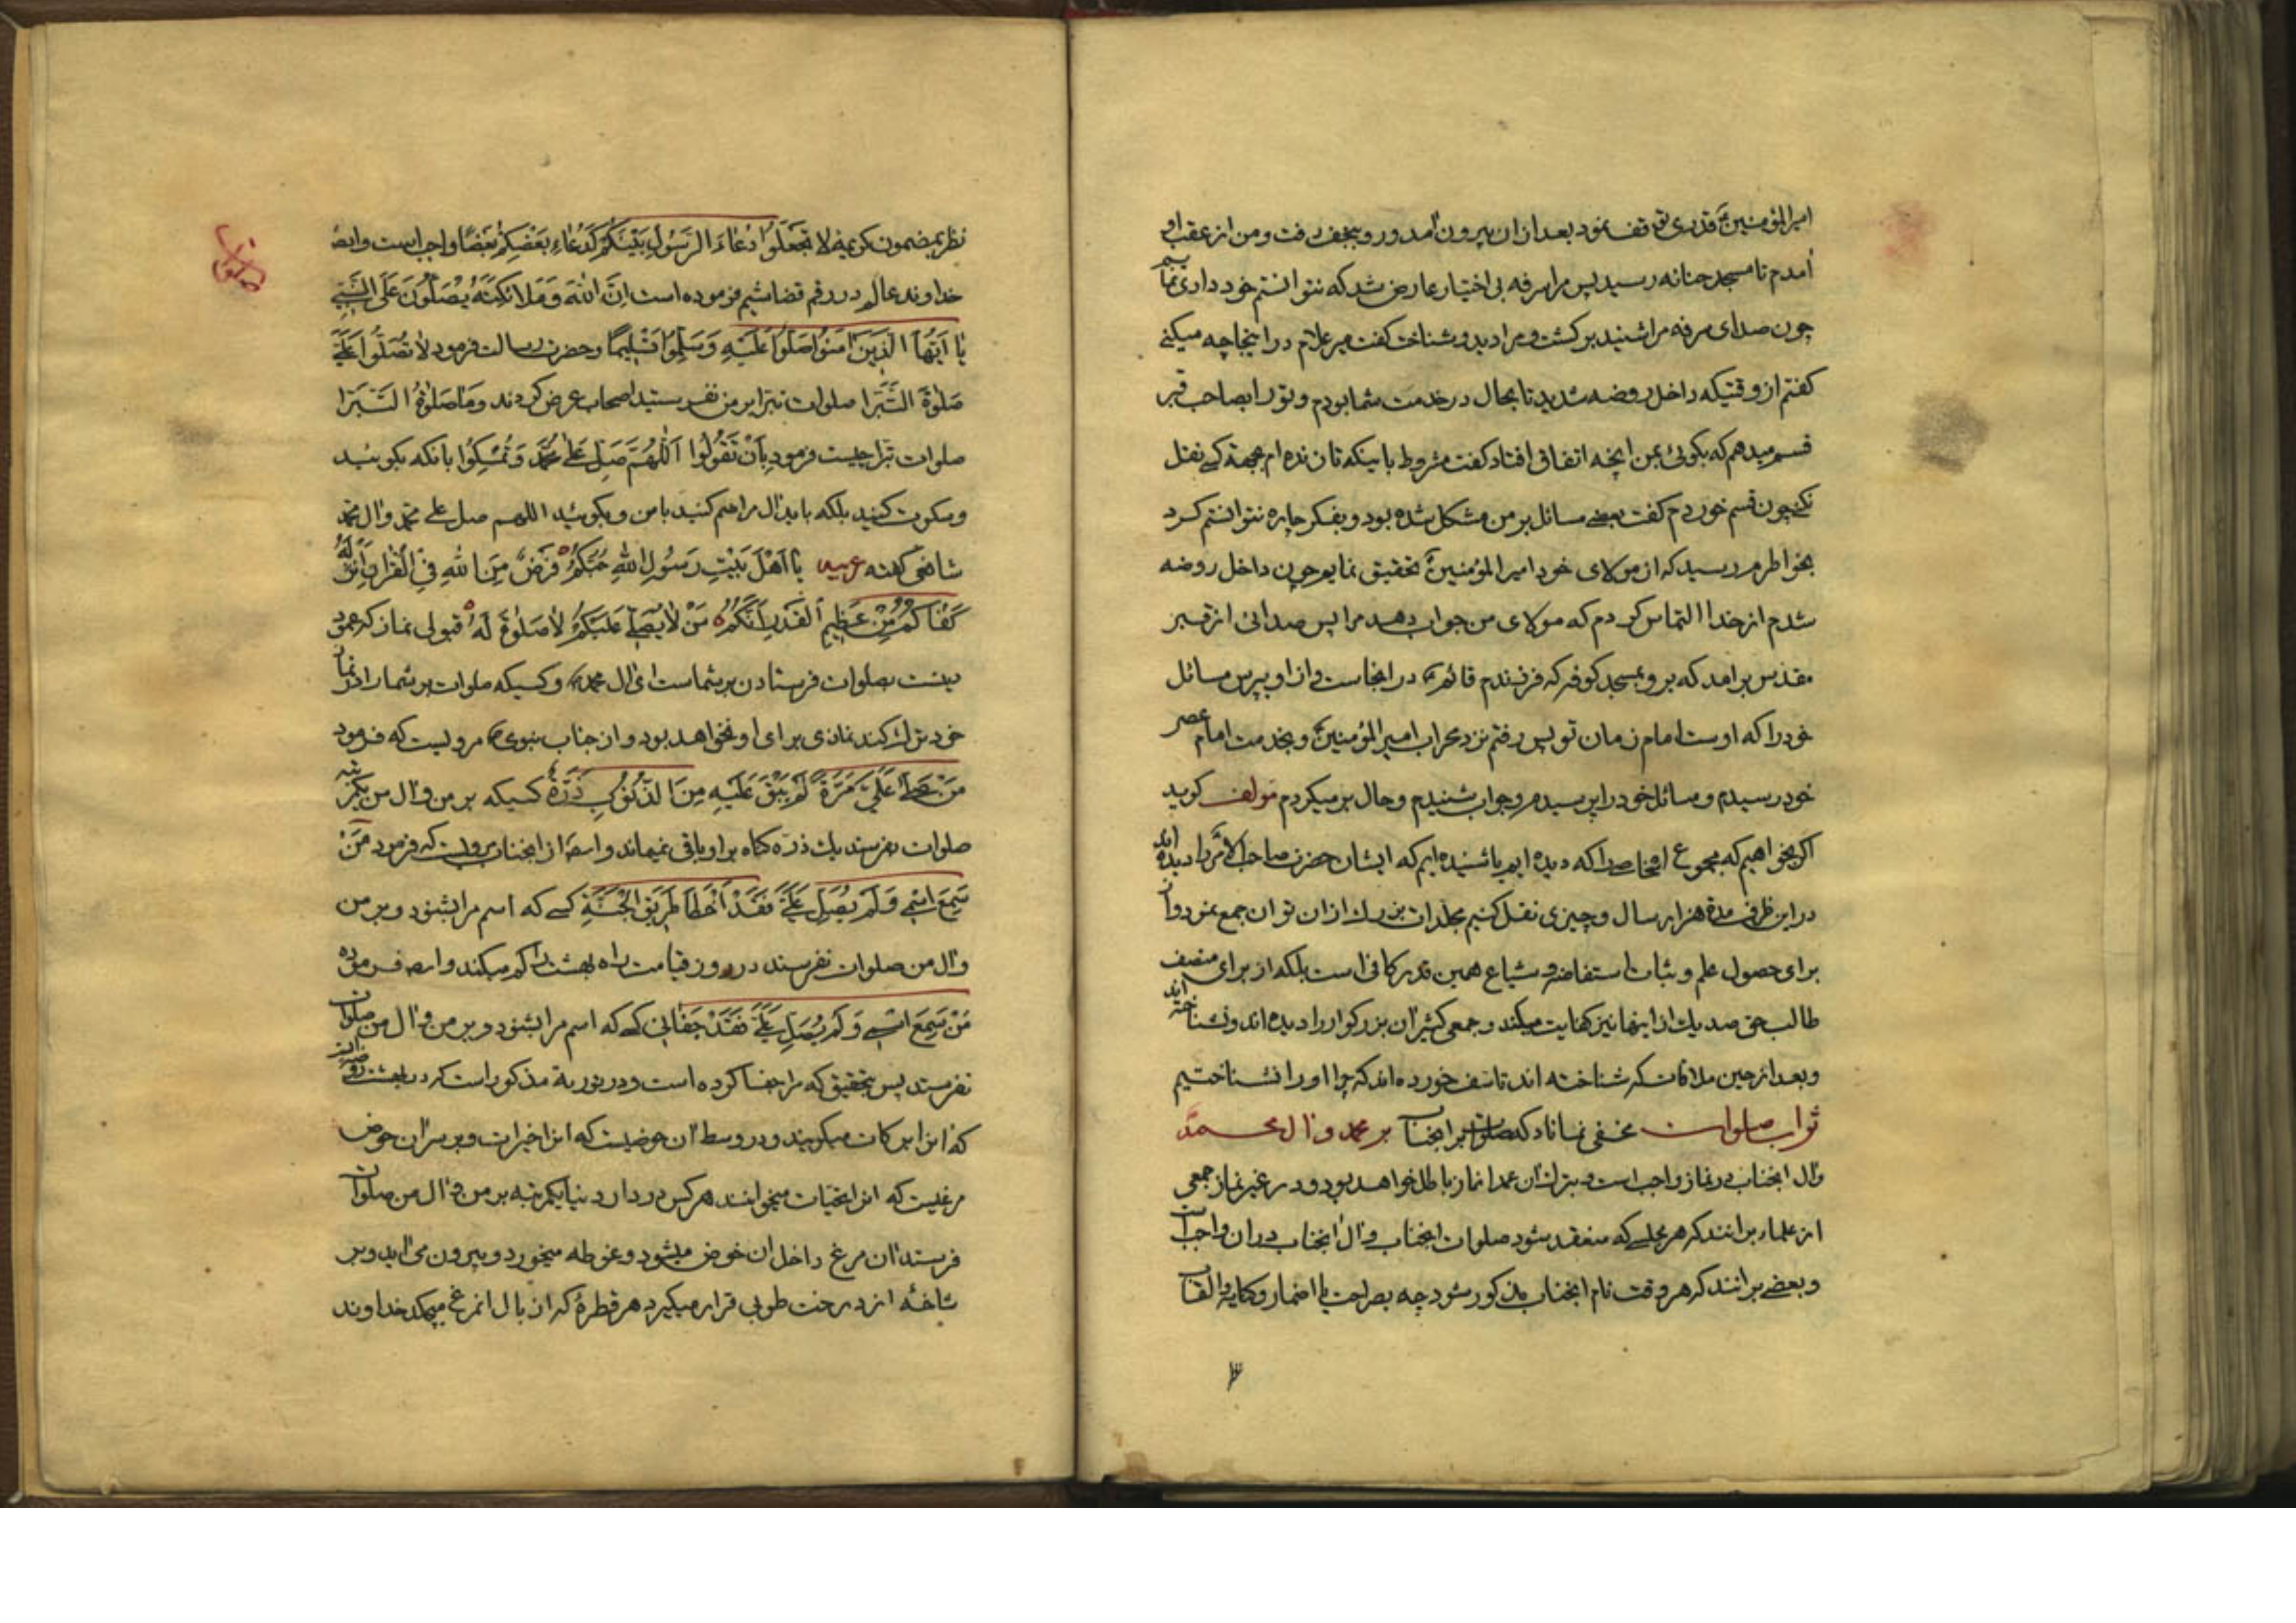 امیرالمؤمنین ع قدری توقف نمود بعد از ان بیرون آمد و رو بنجف رفت و من از عقب او
آمدم تا مسجد حنانه رسید پس مرا سرفه بی اختیار عارض شد که نتوانستم خودداری نمایم
چون صدای سرفه مرا شنید برکشت و مرا دید و شناخت کفت میر علام در اینجا چه میکنی
کفتم از وقتیکه داخل روضه شدید تا بحال در خدمت شما بودم و تو را بصاحب قبر
قسم میدهم که بکوئی بمن انچه اتفاق افتاد کفت مشروط باینکه تا زنده ام بهیچ کس نقل
نکنی چون قسم خوردم کفت بعضی مسائل بر من مشکل شده بود و بفکر چاره نتوانستم کرد
بخواطرم رسید که از مولای خود امیرالمؤمنین ع تحقیق نمایم چون داخل روضه
شدم از خدا التماس کردم که مولای من جواب دهد مرا پس صدائی از قبر
مقدس برامد که برو بمسجد کوفه که فرزندم قائم ع در انجاست و از او بپرس مسائل
خود را که اوست امام زمان تو پس رفتم نزد محراب امیرالمؤمنین ع و بخدمت امام عصر
خود رسیدم و مسائل خود را پرسیدم و جواب شنیدم و حال بر میکردم مؤلف کوید
اکر بخواهیم که مجموع اشخاصی را که دیده ایم یا شنیده ایم که ایشان حضرت صاحب الامر را دیده اند
در این ظرف مدة هزار سال و چیزی نقل کنیم مجلدات بزرک از ان توان جمع نمود و ان
برای حصول علم و بثبات استفاضه و شیاع همین قدر کافی است بلکه از برای منصف
طالب حق صد یک از اینها نیز کفایت میکند و جمعی کثیر آن بزرکوار را دیده اند و نشناخته اند
و بعد از حین ملاقات که شناخته اند تاسف خورده اند که چرا او را نشناختیم
ثواب صلوات بر محمد و ال محمد مخفی نماناد که صلوات بر انجناب
و ال انجناب در نماز واجب است و بترک ان عمدا نماز باطل خواهد بود و در غیر نماز جمعی
از علماء برانند که هر مجلسی که منعقد بشود صلوات انجناب و ال انجناب در ان واجب است
و بعضی برانند که هر وقت نام انجناب مذکور شود چه بصراحت یا اضمار و کنایه و القاب
نظر بمضمون کریمه لا تَجعَلُوا دُعاءَ الرَسُولِ بَینَکُم کَدُعاءِ بَعضِکُم بَعضًا واجب است و ایضا
خداوند عالم در رقم قضا شیم فرموده است اِنَّ اللهَ وَمَلائکَتَهُ یُصَلُّونَ عَلَی النَّبِیِّ
یا اَیُّهَا الَّذینَ امَنُوا صَلُّوا عَلَیهِ وَسَلِّمُوا تَسلیمًا و حضرت رسالت فرمود لا تُصَلُّوا عَلَیَّ
صَلوةَ التَبَرا صلوات تبرا بر من نفرستید اصحاب عرض کردند وَما صَلوةُ التَبَرا
صلوات تبرا چیست فرمود بِاَن تَقُولُوا اَللّهُمَّ صَلِّ عَلی مُحَمَّد وَتُمسِکُوا بانکه بکوئید
و سکوت کنید بلکه باید ال را ضم کنید با من و بکوئید اللهم صل علی محمد و ال محمد
شافعی کفته عربیه یا اَهلَ بَیتِ رَسُولِ اللهِ حُبُّکُم فَرَضٌ مِنَ اللهِ فِی القُرانِ اَنزَلَهُ
کَفاکُم مِن عَظیمِ القَدرِ اَنَّکُم مَن لا یُصَلِّ عَلَیکُم لا صَلوةَ لَهُ قبولی نماز که عمود
دینست بصلوات فرستادن بر شماست ای ال محمد ص و کسیکه صلوات بر شما را در نماز
خود ترک کند نمازی برای او نخواهد بود و از جناب نبوی ص مرویست که فرمود
مَن صَلّی عَلَیَّ مَرَّةً لَم یَبقَ عَلَیهِ مِنَ الذُنُوبِ ذَرَّةٌ کسیکه بر من و ال من یکمرتبه
صلوات بفرستد یک ذره کناه بر او باقی نمیماند و ایضا از انجناب مرویست که فرمود مَن
سَمِعَ اسمی وَلَم یُصَلِّ عَلَیَّ فَقَد اَخطَا طَریقَ الجَنَّةِ کسی که اسم مرا بشنود و بر من
و ال من صلوات نفرستد در روز قیامت راه بهشت را کم میکند و ایضا فرموده
مَن سَمِعَ اسمی وَلَم یُصَلِّ عَلَیَّ فَقَد جَفانی کسی که اسم مرا بشنود و بر من و ال من صلوات
نفرستد پس بتحقیق که مرا جفا کرده است و در توریة مذکور است که در بهشت روضه ایست
که انرا برکات میکویند و در وسط ان حوضیست که انرا خیرات و بر سر ان حوض
مرغیست که انرا تحیات میخوانند هر کس در دار دنیا یکمرتبه بر من و ال من صلوات
فرستد ان مرغ داخل ان حوض میشود و غوطه میخورد و بیرون می اید و بر
شاخهٔ از درخت طوبی قرار میکیرد هر قطرهٔ که از بال انمرغ میچکد خداوند